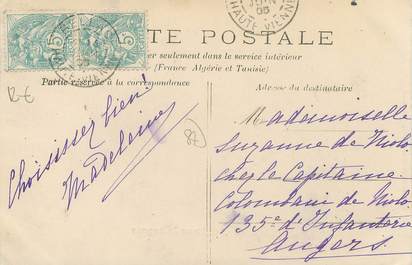 5 5
JUIN
05
HAUTE-VIENNE
TE POSTALE
er seulement dans le service intérieur
(France Algérie et Tunisie)
Partie réservée à la correspondance
Adresse du destinataire
12€
87
Choisissez bien!
Madeleine
Mademoiselle
Suzanne de Niolo
chez le Capitaine
Colombani de Niolo
135e d'Infanterie
Angers